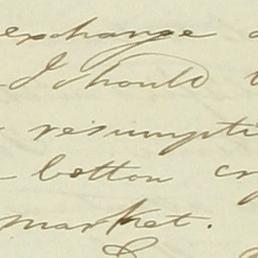 exchange
I should
resumpti
botton
market.